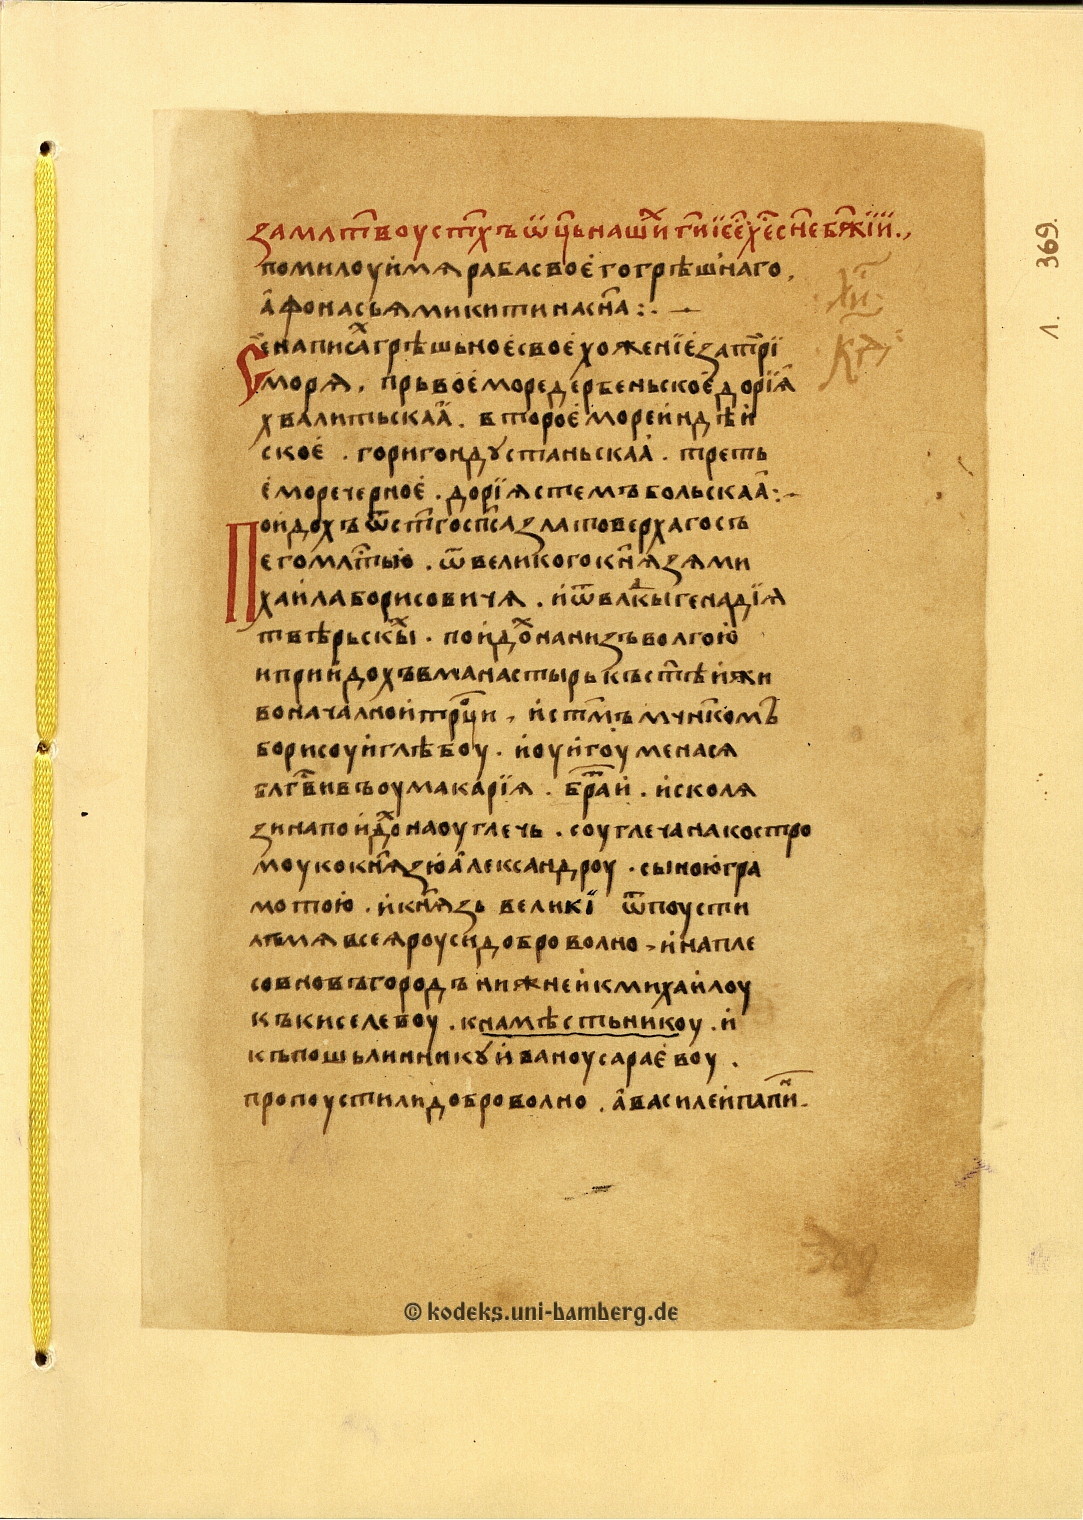 за млт҃воу ст҃хъ ѿц҃ь наши гⷭ҇и іс҃е хе҃ сн҃е бж҃їи .,
помилоуй мѧ раба своего грѣшнаго ,
аѳонасьѧ микитина сн҃а :. —
Се написах грѣшьное свое хоженїе за трї
морѧ , прьвое море дербеньское дорїа
хвалитьскаа . второе море индѣи
ское . гори гондустаньскаа . треть
е море черное . дорїѧ стемъбольскаа :-
Поидохъ ѿ ст҃го сп҃са златоверхаго съ
его млт҃ью . ѿ великого кн҃ѧзѧ ми
хаила борисовичѧ . и ѿ влⷣкы генадїѧ
твѣрьскых . поидох на низъ волгою
и приидохъ в манастырь къ ст҃ѣи жи
воначалнои трⷪ҇ци , и ст҃мъ мч҃нкомъ
борисоу и глѣбоу . и оу игоуменасѧ
блг҃вивъ оу макарїѧ . братⷨ҇и . и с колѧ
зина поидох на оуглечь . с оуглеча на костро
моу ко кн҃ѧзю александроу . с ыною гра
мотою . и кн҃ѧзь великї ѿпоусти
лъ мѧ всеѧ роуси добро волно , и на пле
со в новъгородъ нижнеи к михаилоу
къ киселевоу . к намѣстьникоу . и
къ пошьлинникꙋ иваноу сараевоу .
пропоустили доброволно . а василеи папин.
л. 369.
369
© kodeks.uni-bamberg.de